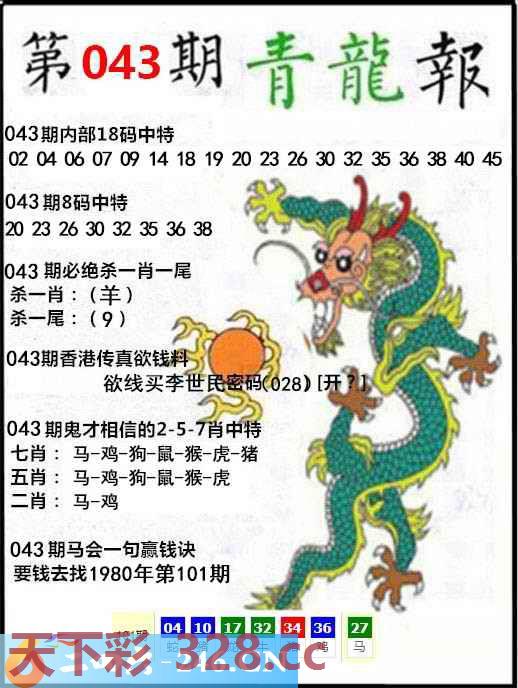 第043期 青龍報
043期内部18码中特
02 04 06 07 09 14 18 19 20 23 26 30 32 35 36 38 40 45
043期8码中特
20 23 26 30 32 35 36 38
043 期必绝杀一肖一尾
杀一肖：(羊)
杀一尾：(9)
043期香港传真欲钱料
欲线买李世民密码(028) [开?]
043期鬼才相信的2-5-7肖中特
七肖：马-鸡-狗-鼠-猴-虎-猪
五肖：马-鸡-狗-鼠-猴-虎
二肖：马-鸡
043期马会一句赢钱诀
要钱去找1980年第101期
04 10 17 32 34 36 27
鸡 马
天下彩-328.cc